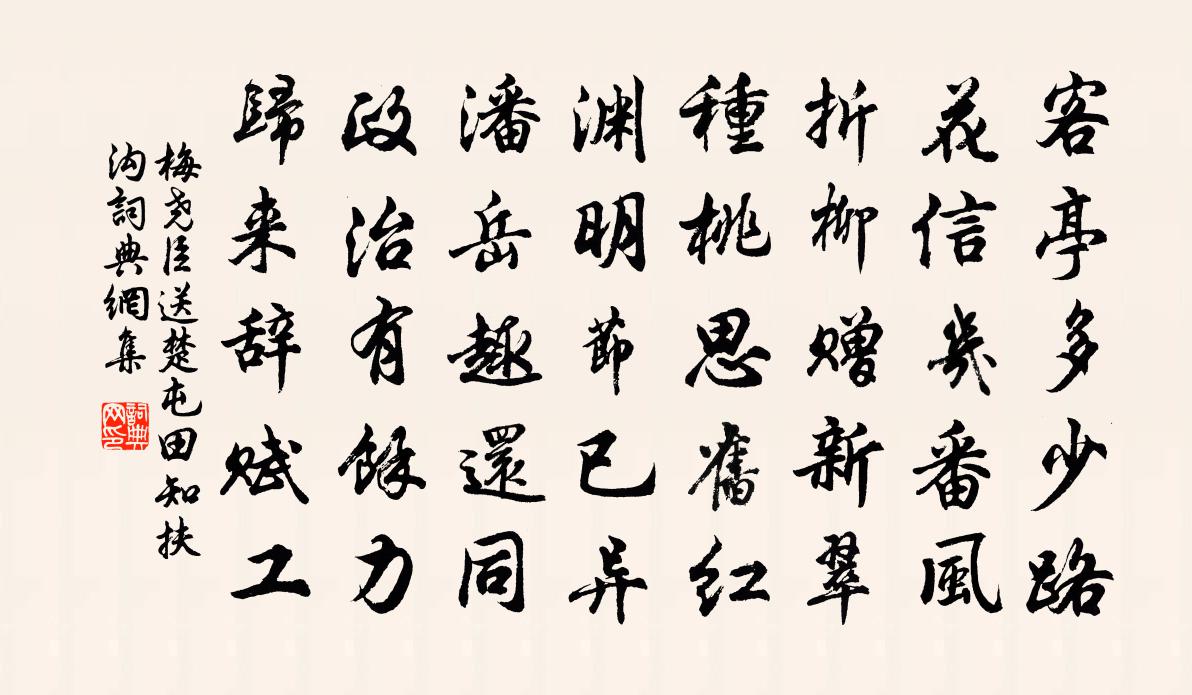 客亭多少路
花信幾番風
折柳赠新翠
種桃思舊红
渊明節已异
潘岳趣還同
政治有餘力
歸来辞赋工
梅尧臣送楚屯田知扶
沟詞典網集
詞典网印